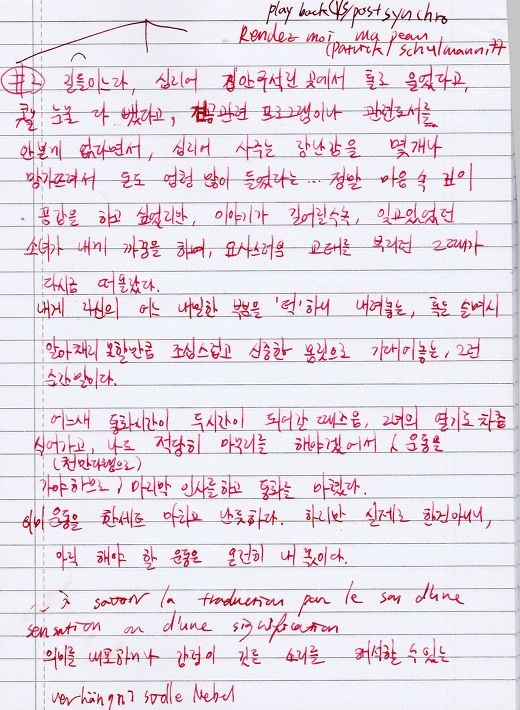 play back VS post synchro
Rendez moi ma peau
(Patrick Schulmann)
#2 길들이느라, 심리어 구석진 곳에서 홀로 울었다고,
콧물 눈물 다 뺐다고, 관련 프로그램이나 관련도서를
안본게 없다면서, 심리어 사주는 장난감을 몇개나
망가뜨려서 돈도 엄청 많이 들었다는... 정말 마음속 깊이
공감을 하고 싶었지만, 이야기가 길어질수록, 잊고있었던
소녀가 내게 까꿍을 하며, 요사스러운 교태를 부리던 그때가
다시금 떠올랐다.
내게 자신의 어느 내밀한 부분을 '턱'하니 내려놓는, 혹은 슬며시
알아채지 못할만큼 조심스럽고 신중한 몸짓으로 기대어놓는, 그런
순간말이다.
어느새 통화시간이 두시간이 되어간 때즈음, 그녀의 열기도 차츰
식어가고, 나도 적당히 마무리를 해야겠어서 운동을
(천만다행으로)
가야하므로, 마지막 인사를하고 통화를 마쳤다.
이미 운동을 한세트 마치고 난듯하다. 하지만 실제로 한건아니니,
아직 해야 할 운동은 온전히 내 몫이다.
à la traduction par le son d'une
sensation ou d'une signification
의미를 내포하거나 감정이 깃든 소리를 해석할 수 있는
Nebel